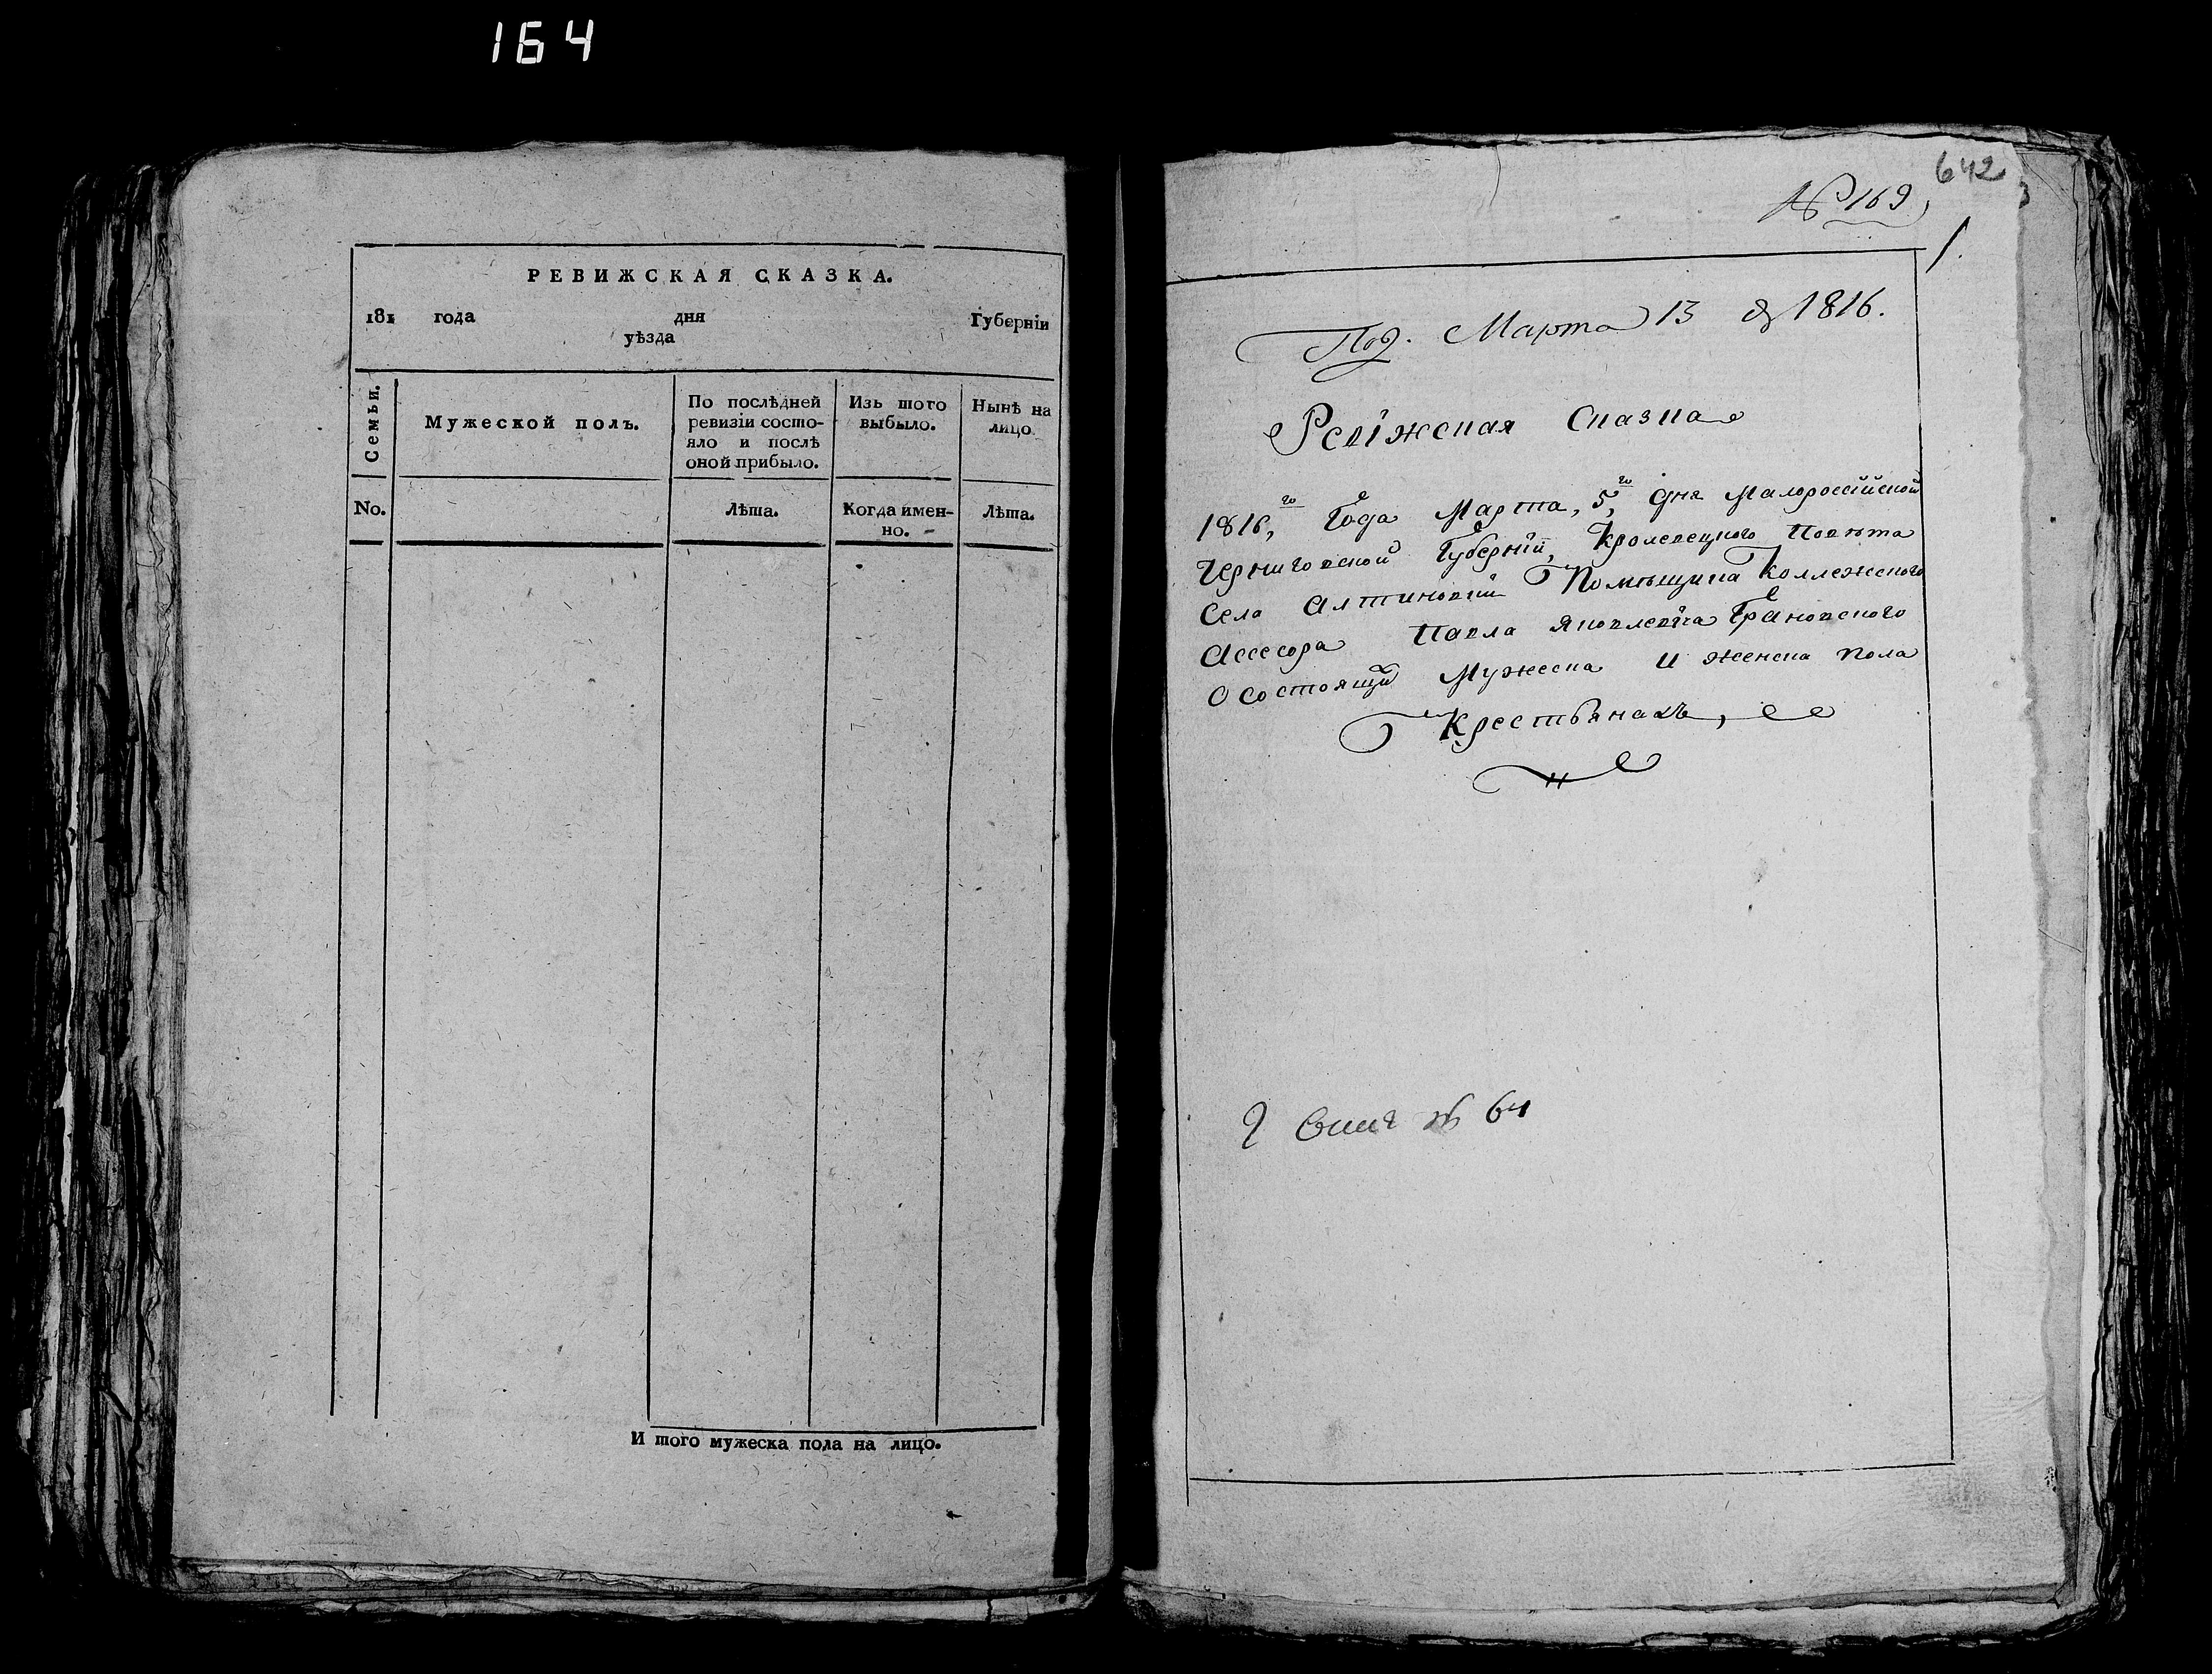 164
РЕВИЖСКАЯ СКАЗКА.
181 года дня Губерніи
уѣзда
Семьи.
Мужеской полъ.
По послѣдней ревизіи состояло и послѣ оной прибыло.
Изъ того выбыло.
Нынѣ на лицо.
No.
Лѣта.
Когда именно.
Лѣта.
И того мужеска пола на лицо.
642
№ 169
1.
Под. Марта 13 1816.
Ревіжская Сказка
1816,го Года Марта, 5,го дня Малороссійской
Черниговской Губерніи, Кролевецкого Повѣта
Села Алтиновки Помѣщика Коллежского
Асессора Павла Яковлевича Грановского
О состоящих Мужеска и женска пола
Крестьянахъ,
№ 64